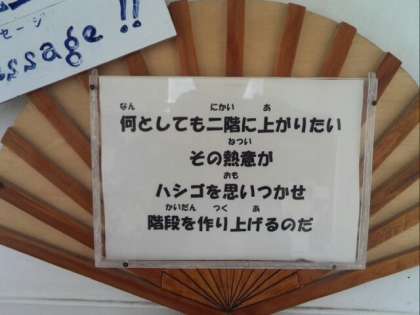 セージ
ssage!!
なん にかい あ
何としても二階に上がりたい
ねつい
その熱意が
おも
ハシゴを思いつかせ
かいだん つく あ
階段を作り上げるのだ